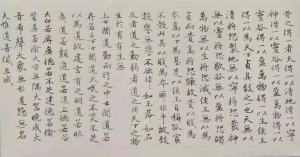 昔之得一者天得一以清地得一以寧
神得一以靈谷得一以盈萬物得一以生侯王
得一以為天下貞其致之也天無以
清將恐裂地無以寧將恐發神
無以靈將恐歇谷無以盈將恐竭
萬物無以生將恐滅侯王無以
貞而貴高將恐蹶故貴以賤為
本高以下為基是以侯王自稱孤寡
不穀此其以賤為本耶非乎故致
數譽無譽不欲如玉如石
反者道之動弱者道之用天下之物
生於有有生於無
上士聞道勤而行之中士聞道若
存若亡下士聞道大笑之不笑不足
以為道故建言有之明道若昧
進道若退夷道若上德若谷
大白若辱廣德若不足建德若偷
質真若渝大方無隅大器晚成
大音希聲大象無形道隱無名
夫唯道善貸且成